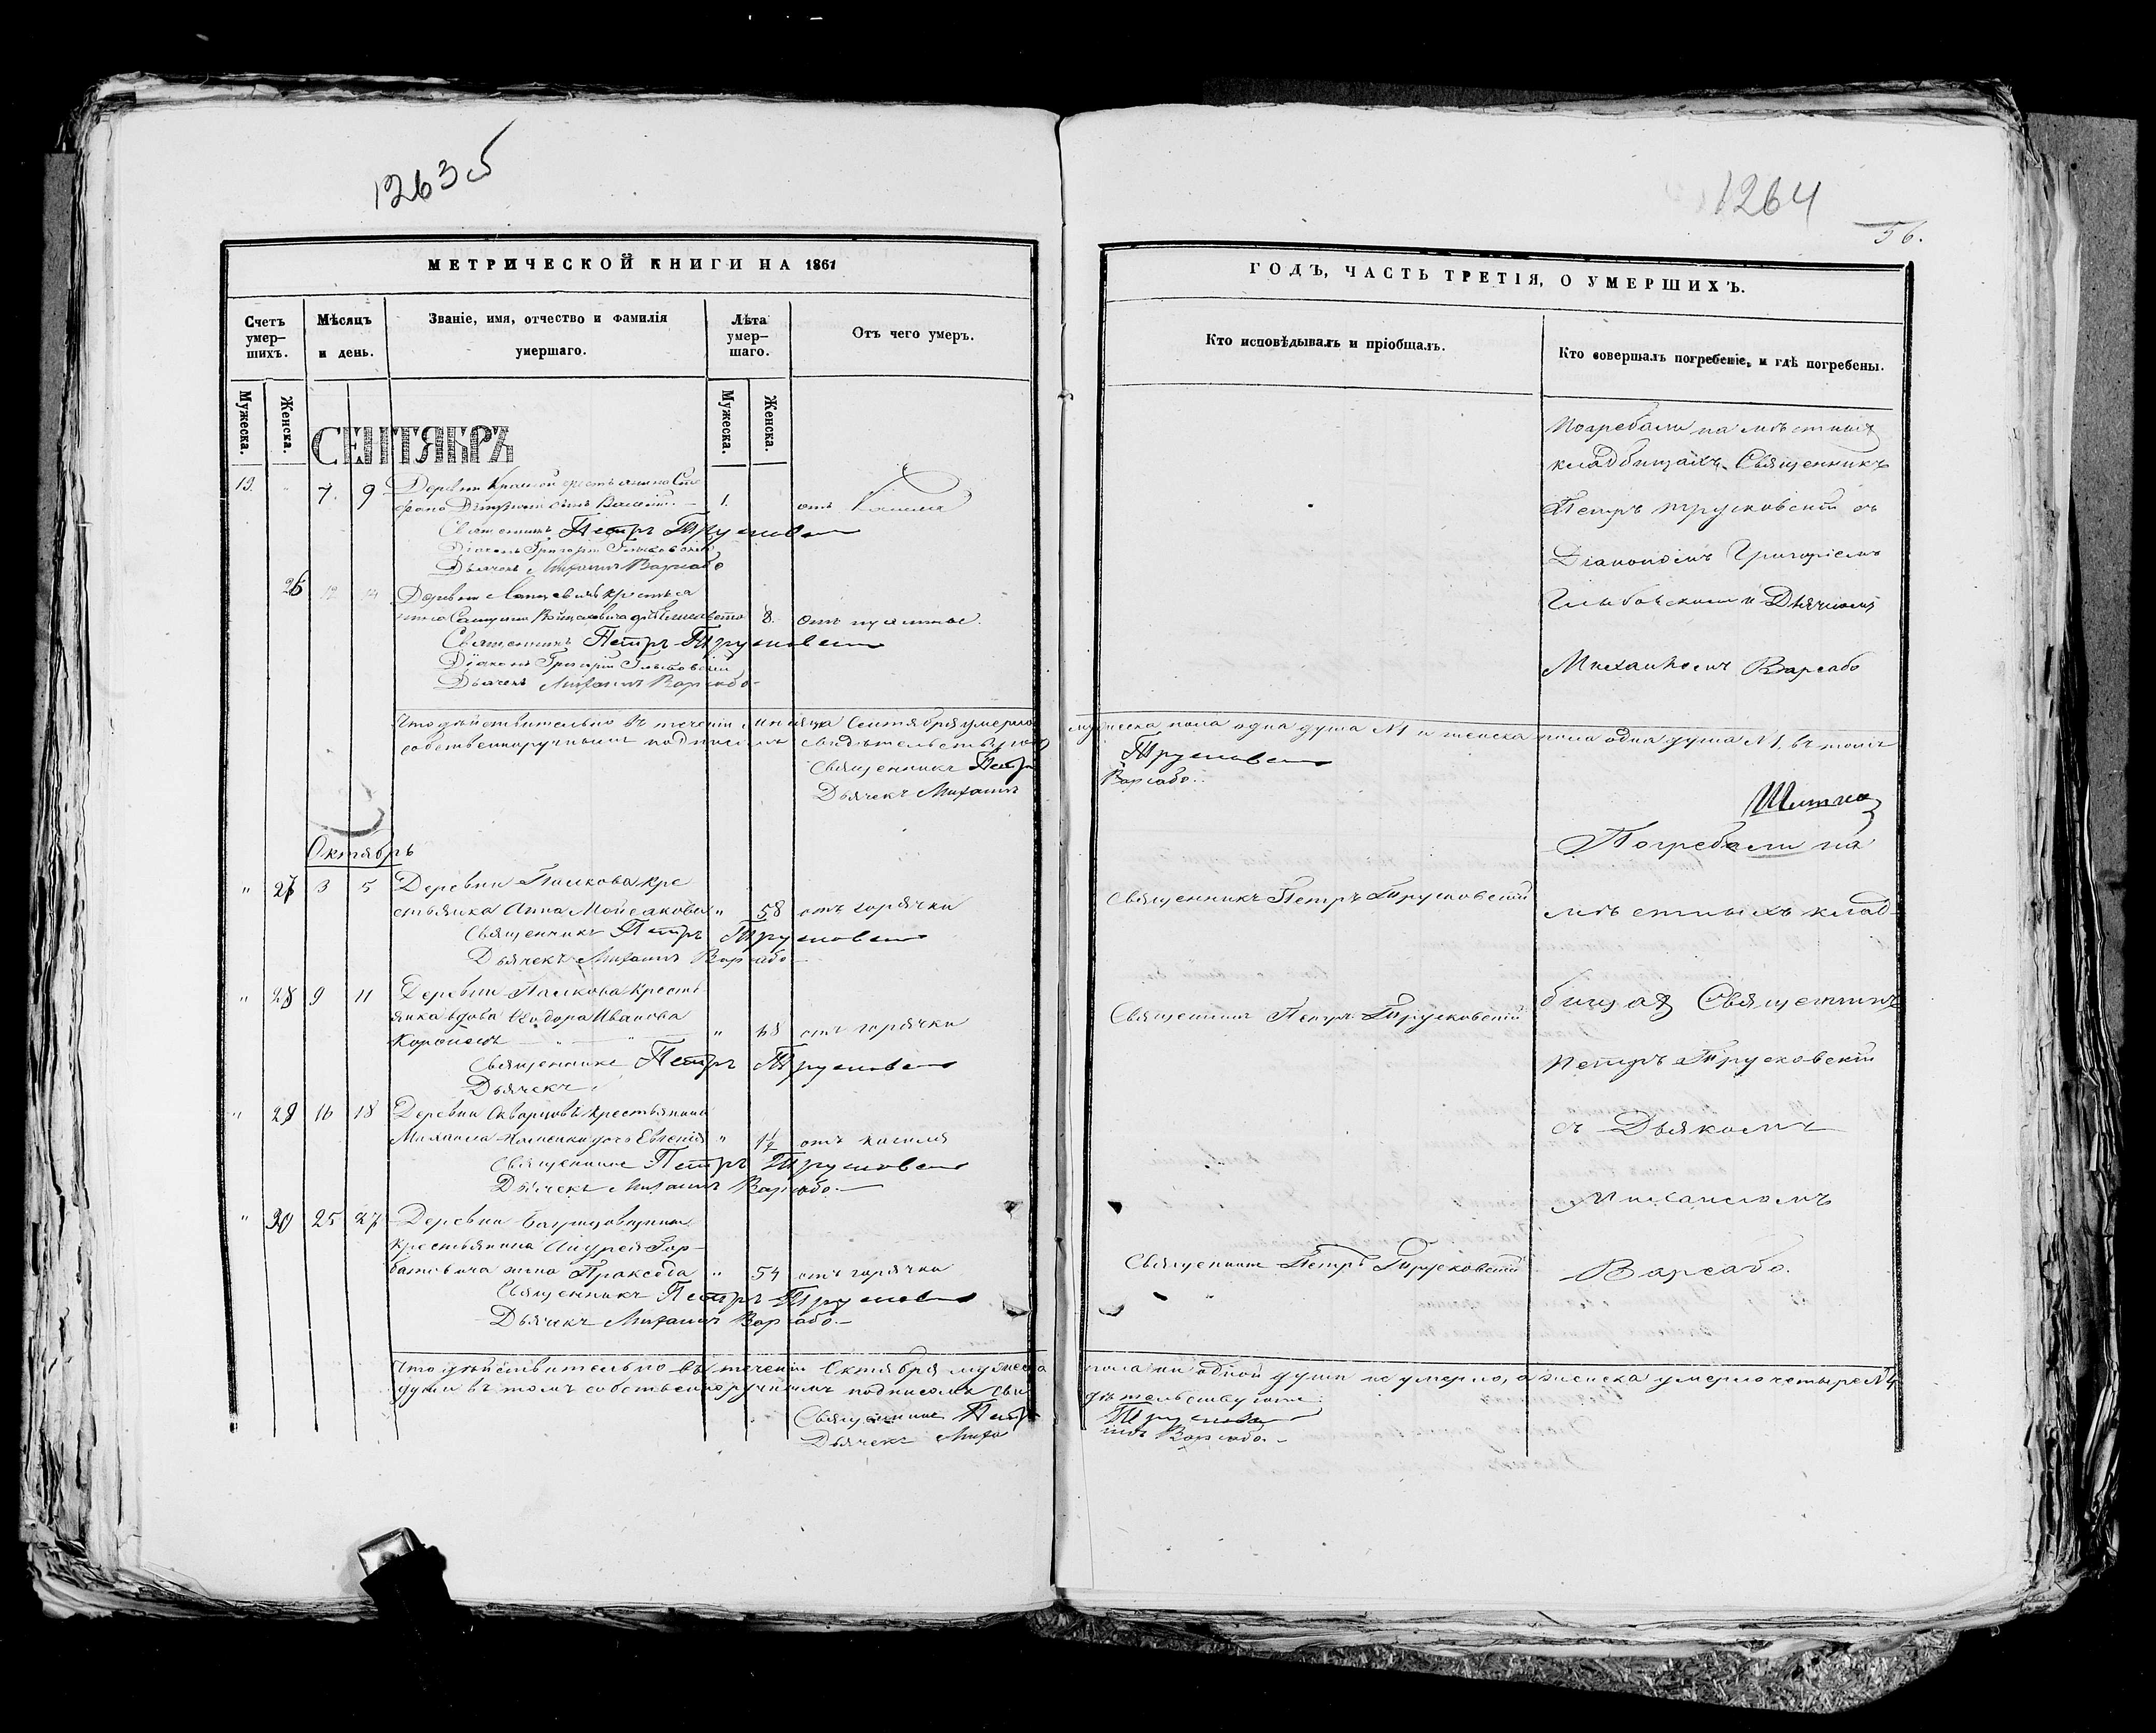 1263 об
МЕТРИЧЕСКОЙ КНИГИ НА 1861
Счетъ умер-шихъ.
Мѣсяцъ и день.
Званіе, имя, отчество и фамилія умершаго.
Лѣта умер-шаго.
Отъ чего умеръ.
Мужеска.
Женска.
Мужеска.
Женска.
СЕНТЯБРЬ
13. 7. 9 Деревни крестьянина Сте
фана сынъ Василій. 1. отъ кашля
Священникъ Петръ Трусковскій
Діаконъ Григорій Глыбовскій
Дьячекъ Михаилъ Варсабо
26 12 14 Деревни крестья
нина дочь Елисавета 8. отъ
Священникъ Петръ Трусковскій
Діаконъ Григорій Глыбовскій
Дьячекъ Михаилъ Варсабо
Что дѣйствительно въ теченіи мѣсяца Сентября умерло
собственноручнымъ подписомъ свидѣтельствуютъ
Священникъ Петръ
Дьячекъ Михаилъ
Октябрь
" 27 3 5 Деревни Палкова кре
стьянка Анна Мойсакова " 58 отъ горячки
Священникъ Петръ Трусковскій
Дьячекъ Михаилъ Варсабо
" 28 9 11 Деревни Палкова кресть
янка вдова Ѳеодора Иванова
" отъ горячки
Священникъ Петръ Трусковскій
Дьячекъ
" 29 16 18 Деревни крестьянина
Михаила дочь Евгенія " 1½ отъ кашля
Священникъ Петръ Трусковскій
Дьячекъ Михаилъ Варсабо.
" 30 25 27 Деревни
крестьянина Андрея Гор-
батовича жена Пракседа " 54 отъ горячки
Священникъ Петръ Трусковскій
Дьячекъ Михаилъ Варсабо.
Что дѣйствительно въ теченіи Октября мужеска
души въ томъ собственноручнымъ подписомъ сви
Священникъ Петръ
Дьячекъ Миха
1264
56.
ГОДЪ, ЧАСТЬ ТРЕТІЯ, О УМЕРШИХЪ.
Кто исповѣдывалъ и пріобщалъ.
Кто совершалъ погребеніе, и гдѣ погребены.
Погребали на мѣстныхъ
кладбищахъ Священникъ
Петръ Трусковскій съ
Діакономъ Григоріемъ
Глыбовскимъ и Дьячкомъ
Михаиломъ Варсабо
мужеска пола одна душа №1 и женска пола одна душа №1, въ томъ
Трусковскій
Варсабо.
Погребали на
Священникъ Петръ Трусковскій
мѣстныхъ клад-
бищахъ Священникъ
Священникъ Петръ Трусковскій
Петръ Трусковскій
съ Дьякомъ
Михаиломъ
Священникъ Петръ Трусковскій
Варсабо.
пола ни одной души не умерло, а женска умерло четыре №4
дѣтельствуютъ
Трусковскій
илъ Варсабо.